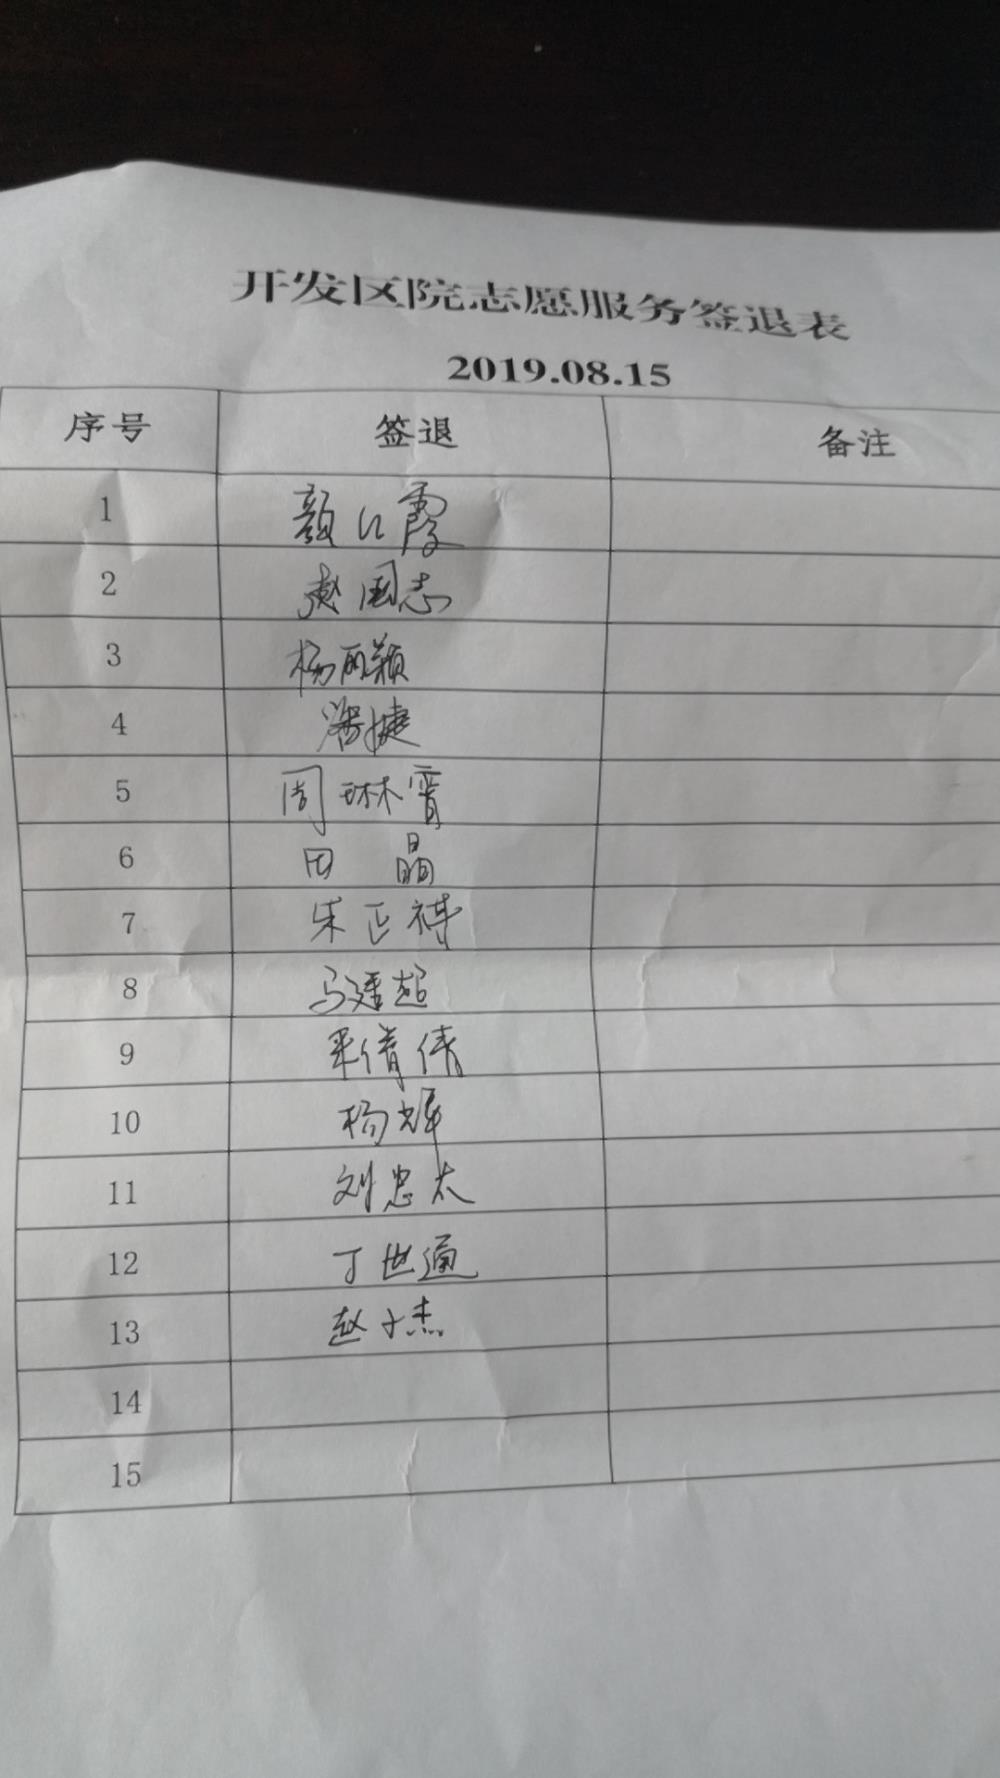 开发区院志愿服务签退表
2019.08.15
序号 签退 备注
1 颜红霞
2 赵国志
3 杨丽颖
4 潘捷
5 周琳霄
6 田晶
7 朱正祥
8 马廷超
9 倩倩
10 杨辉
11 刘忠太
12 丁世通
13 赵子杰
14
15